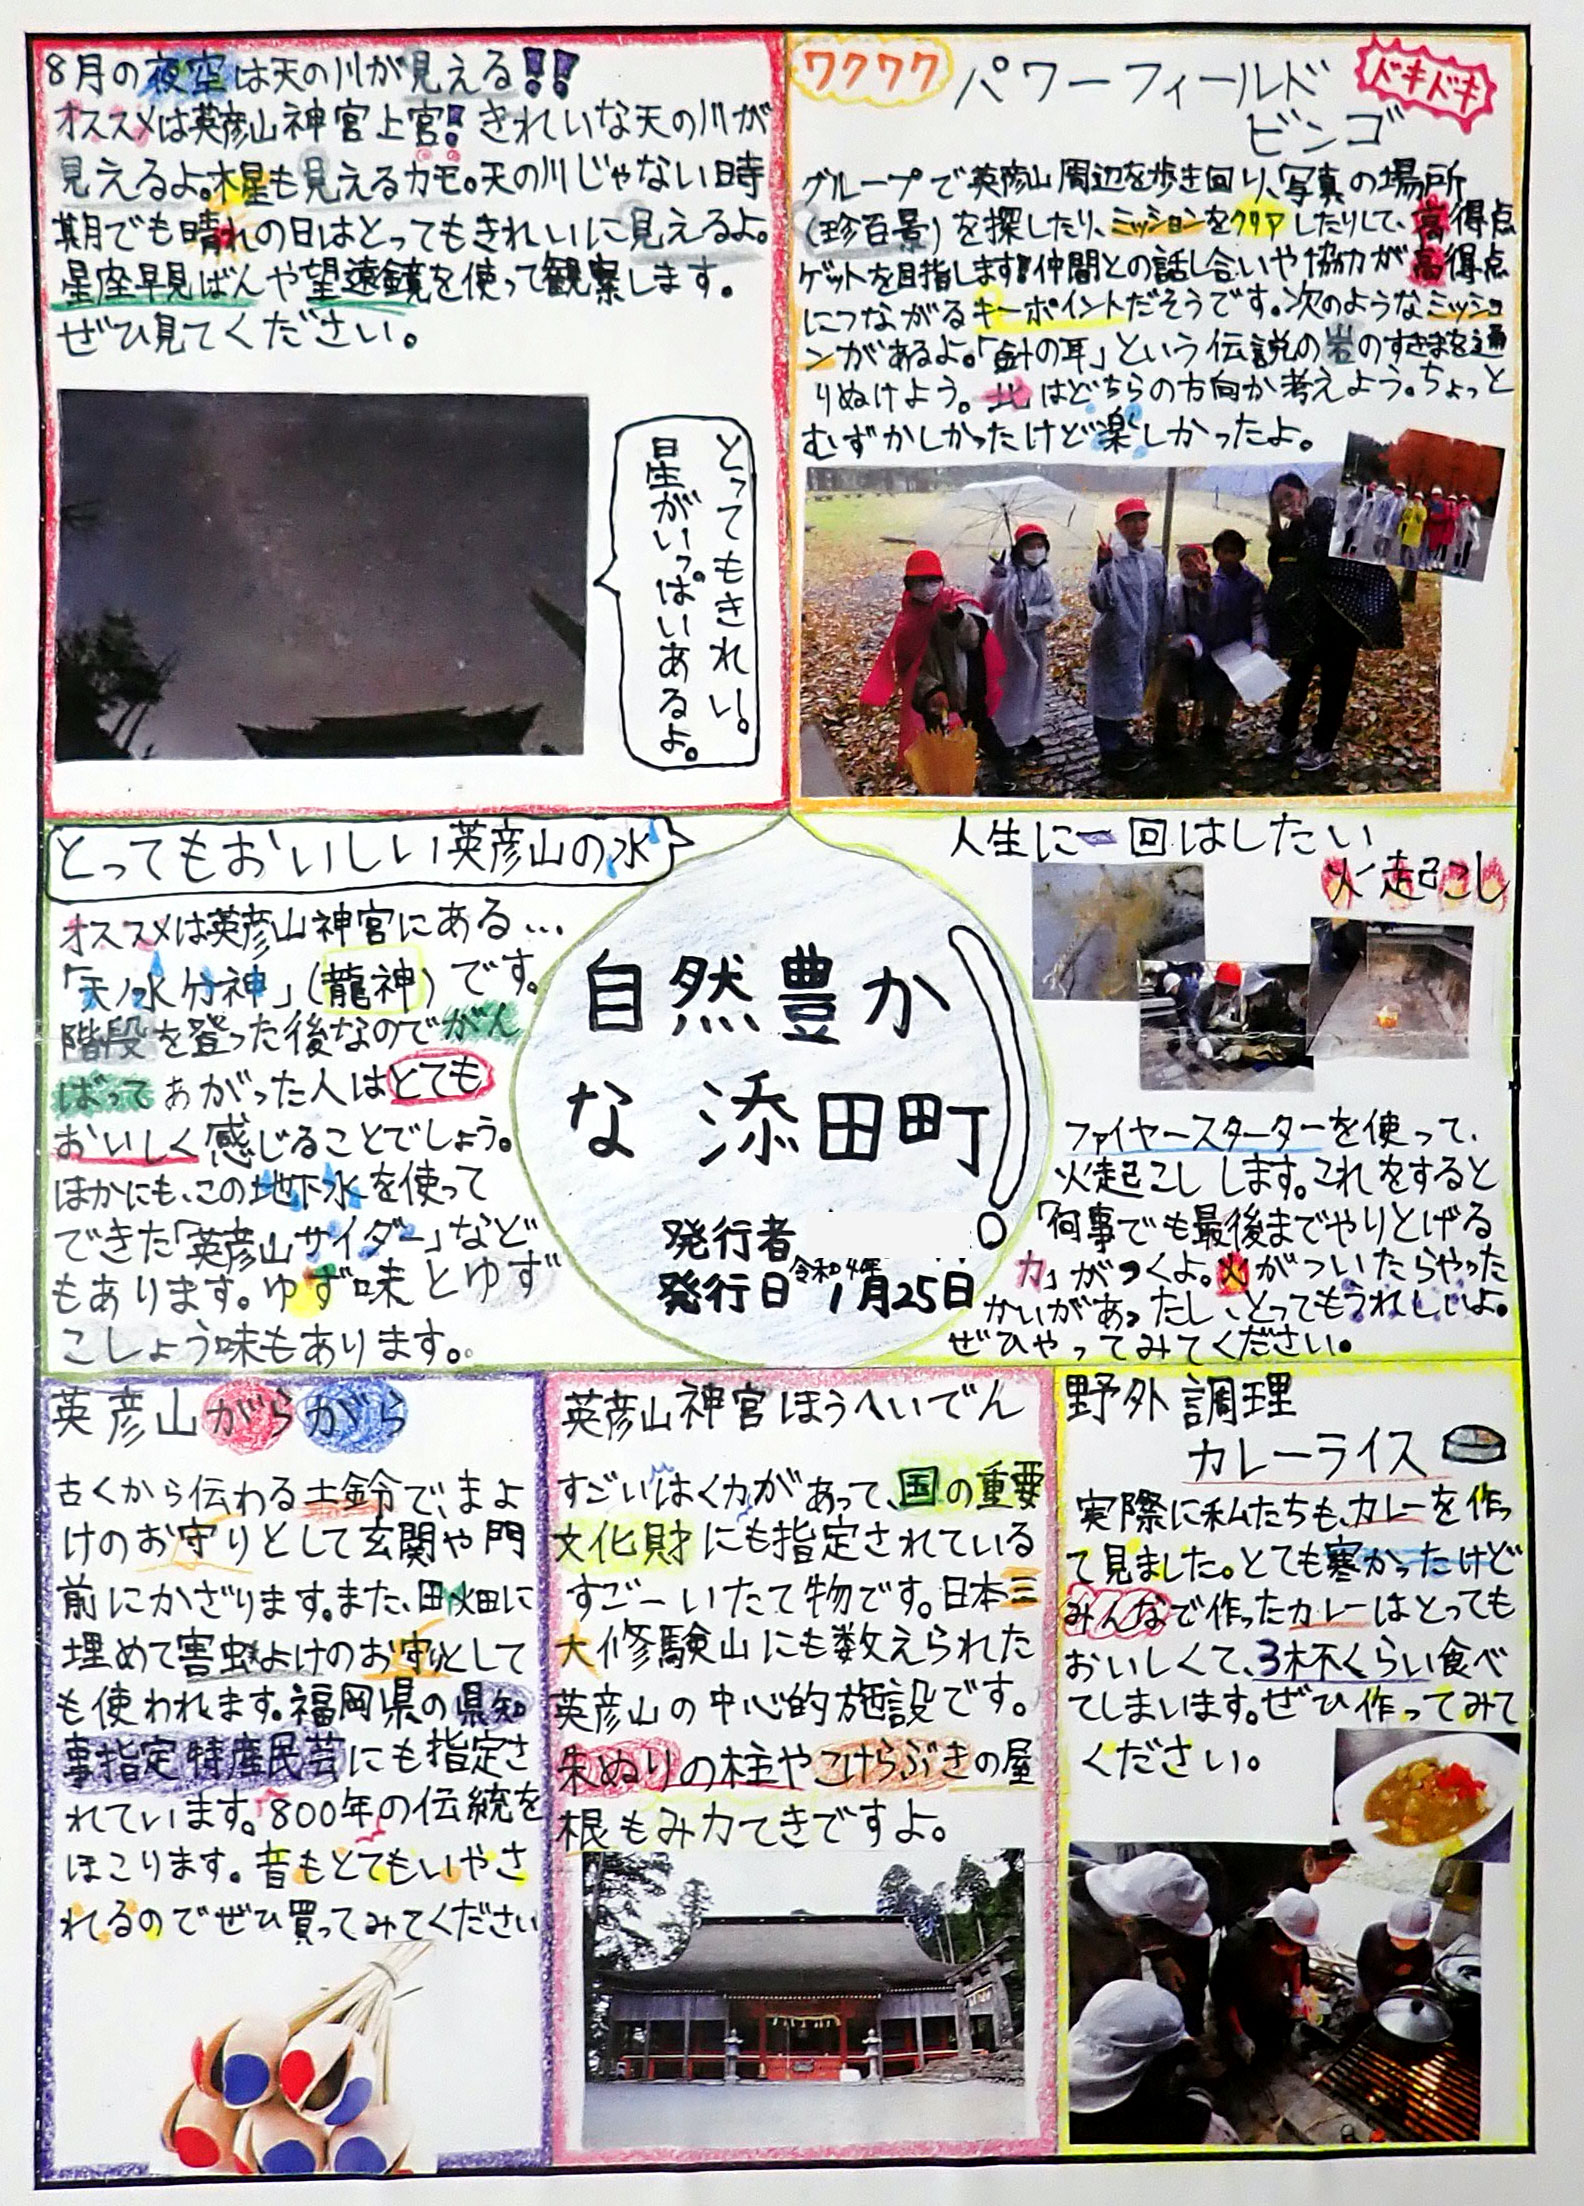 8月の夜空は天の川が見える!!
オススメは英彦山神宮上宮!きれいな天の川が
見えるよ。木星も見えるカモ。天の川じゃない時
期でも晴れの日はとってもきれいに見えるよ。
星座早見ばんや望遠鏡を使って観察します。
ぜひ見てください。
とってもきれい。
星がいっぱいあるよ。
ワクワク
パワーフィールド
ビンゴ
ドキドキ
グループで英彦山周辺を歩き回り、写真の場所
(珍百景)を探したり、ミッションをクリアしたりして、高得点
ゲットを目指します!仲間との話し合いや協力が高得点
につながるキーポイントだそうです。次のようなミッショ
ンがあるよ。「針の耳」という伝説の岩のすきまを通
りぬけよう。北はどちらの方向か考えよう。ちょっと
むずかしかったけど楽しかったよ。
とってもおいしい英彦山の水
オススメは英彦山神宮にある…
「天ノ水分神」(龍神)です。
階段を登った後なのでがん
ばってあがった人はとても
おいしく感じることでしょう。
ほかにも、この地下水を使って
できた「英彦山サイダー」など
もあります。ゆず味とゆず
こしょう味もあります。
自然豊か
な添田町!
発行者
発行日 令和4年1月25日
人生に一回はしたい
火起こし
ファイヤースターターを使って、
火起こしします。これをすると
「何事でも最後までやりとげる
力」がつくよ。火がついたらやった
かいがあったし、とってもうれしいよ。
ぜひやってみてください。
英彦山がらがら
古くから伝わる土鈴で、まよ
けのお守りとして玄関や門
前にかざります。また、田畑に
埋めて害虫よけのお守りとして
も使われます。福岡県の県知
事指定特産民芸にも指定さ
れています。800年の伝統を
ほこります。音もとてもいやさ
れるのでぜひ買ってみてください
英彦山神宮ほうへいでん
すごいはく力があって、国の重要
文化財にも指定されている
すごーいたて物です。日本三
大修験山にも数えられた
英彦山の中心的施設です。
朱ぬりの柱やこけらぶきの屋
根もみ力てきですよ。
野外調理
カレーライス
実際に私たちも、カレーを作っ
て見ました。とても寒かったけど
みんなで作ったカレーはとっても
おいしくて、3杯くらい食べ
てしまいます。ぜひ作ってみて
ください。